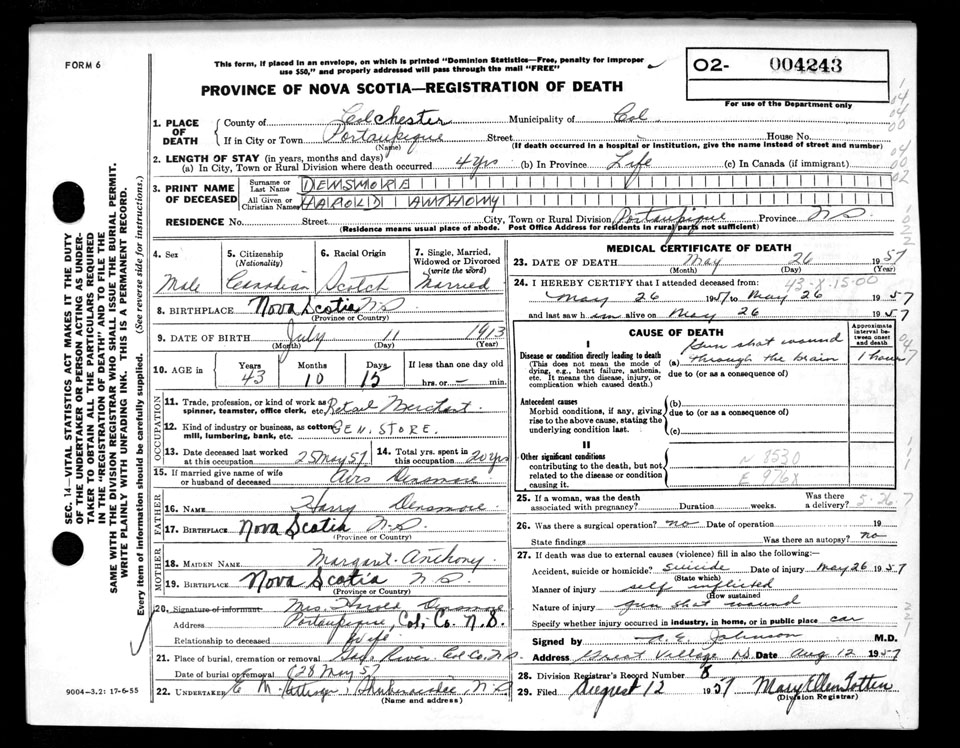 FORM 6
This form, if placed in an envelope, on which is printed "Dominion Statistics—Free, penalty for improper
use $50," and properly addressed will pass through the mail "FREE"
O2- 004243
PROVINCE OF NOVA SCOTIA—REGISTRATION OF DEATH
For use of the Department only
SEC. 14—VITAL STATISTICS ACT MAKES IT THE DUTY
OF THE UNDERTAKER OR PERSON ACTING AS UNDER-
TAKER TO OBTAIN ALL THE PARTICULARS REQUIRED
IN THE "REGISTRATION OF DEATH" AND TO FILE THE
SAME WITH THE DIVISION REGISTRAR WHO SHALL ISSUE THE BURIAL PERMIT.
WRITE PLAINLY WITH UNFADING INK. THIS IS A PERMANENT RECORD.
Every item of information should be carefully supplied. (See reverse side for instructions.)
1. PLACE OF DEATH County of Colchester Municipality of Col
If in City or Town Portaupique Street House No.
(Name) (If death occurred in a hospital or institution, give the name instead of street and number)
2. LENGTH OF STAY (in years, months and days)
(a) In City, Town or Rural Division where death occurred 4 yrs (b) In Province Life (c) In Canada (if immigrant)
3. PRINT NAME OF DECEASED Surname or Last Name DENSMORE
All Given or Christian Names HAROLD ANTHONY
RESIDENCE No. Street City, Town or Rural Division Portaupique Province N.S.
(Residence means usual place of abode. Post Office Address for residents in rural parts not sufficient)
4. Sex Male
5. Citizenship (Nationality) Canadian
6. Racial Origin Scotch
7. Single, Married, Widowed or Divorced (write the word) Married
8. BIRTHPLACE Nova Scotia N.S.
(Province or Country)
9. DATE OF BIRTH July 11 1913
(Month) (Day) (Year)
10. AGE in Years 43 Months 10 Days 15 If less than one day old
hrs. or — min.
OCCUPATION
11. Trade, profession, or kind of work as
spinner, teamster, office clerk, etc. Retail Merchant.
12. Kind of industry or business, as cotton
mill, lumbering, bank, etc. GEN. STORE.
13. Date deceased last worked at this occupation 25 May 57
14. Total yrs. spent in this occupation 20 yrs
15. If married give name of wife
or husband of deceased Avis Densmore
FATHER
16. NAME Harry Densmore
17. BIRTHPLACE Nova Scotia N.S.
(Province or Country)
MOTHER
18. MAIDEN NAME Margaret Anthony
19. BIRTHPLACE Nova Scotia N.S.
(Province or Country)
20. Signature of informant Mrs. Harold Densmore
Address Portaupique, Col, Co. N.S.
Relationship to deceased Wife
21. Place of burial, cremation or removal River Col Co. N.S.
Date of burial or removal 28 May 57
22. UNDERTAKER E. M. N.S.
(Name and address)
9004—3.2: 17-6-55
MEDICAL CERTIFICATE OF DEATH
23. DATE OF DEATH May 26 1957
(Month) (Day) (Year)
24. I HEREBY CERTIFY that I attended deceased from:
43-X-15-00
May 26 1957 to May 26 1957
and last saw him alive on May 26 1957
CAUSE OF DEATH
Approximate interval between onset and death
I
Disease or condition directly leading to death
(This does not mean the mode of dying, e.g., heart failure, asthenia, etc. It means the disease, injury, or complication which caused death.)
(a) Gun shot wound through the brain 1 hour
due to (or as a consequence of)
Antecedent causes
Morbid conditions, if any, giving rise to the above cause, stating the underlying condition last.
(b)
due to (or as a consequence of)
(c)
II
Other significant conditions
contributing to the death, but not related to the disease or condition causing it.
N 8530
E 976X
25. If a woman, was the death associated with pregnancy? Duration weeks. Was there a delivery?
5-26-7
26. Was there a surgical operation? no Date of operation 19
State findings Was there an autopsy? no
27. If death was due to external causes (violence) fill in also the following:—
Accident, suicide or homicide? suicide Date of injury May 26 1957
(State which)
Manner of injury self inflicted
(How sustained
Nature of injury gun shot wound
Specify whether injury occurred in industry, in home, or in public place car
Signed by A. E. Johnson M.D.
Address Great Village N.S. Date Aug 12 1957
28. Division Registrar's Record Number 8
29. Filed August 12 1957 Mary Ellen Totten
(Division Registrar)